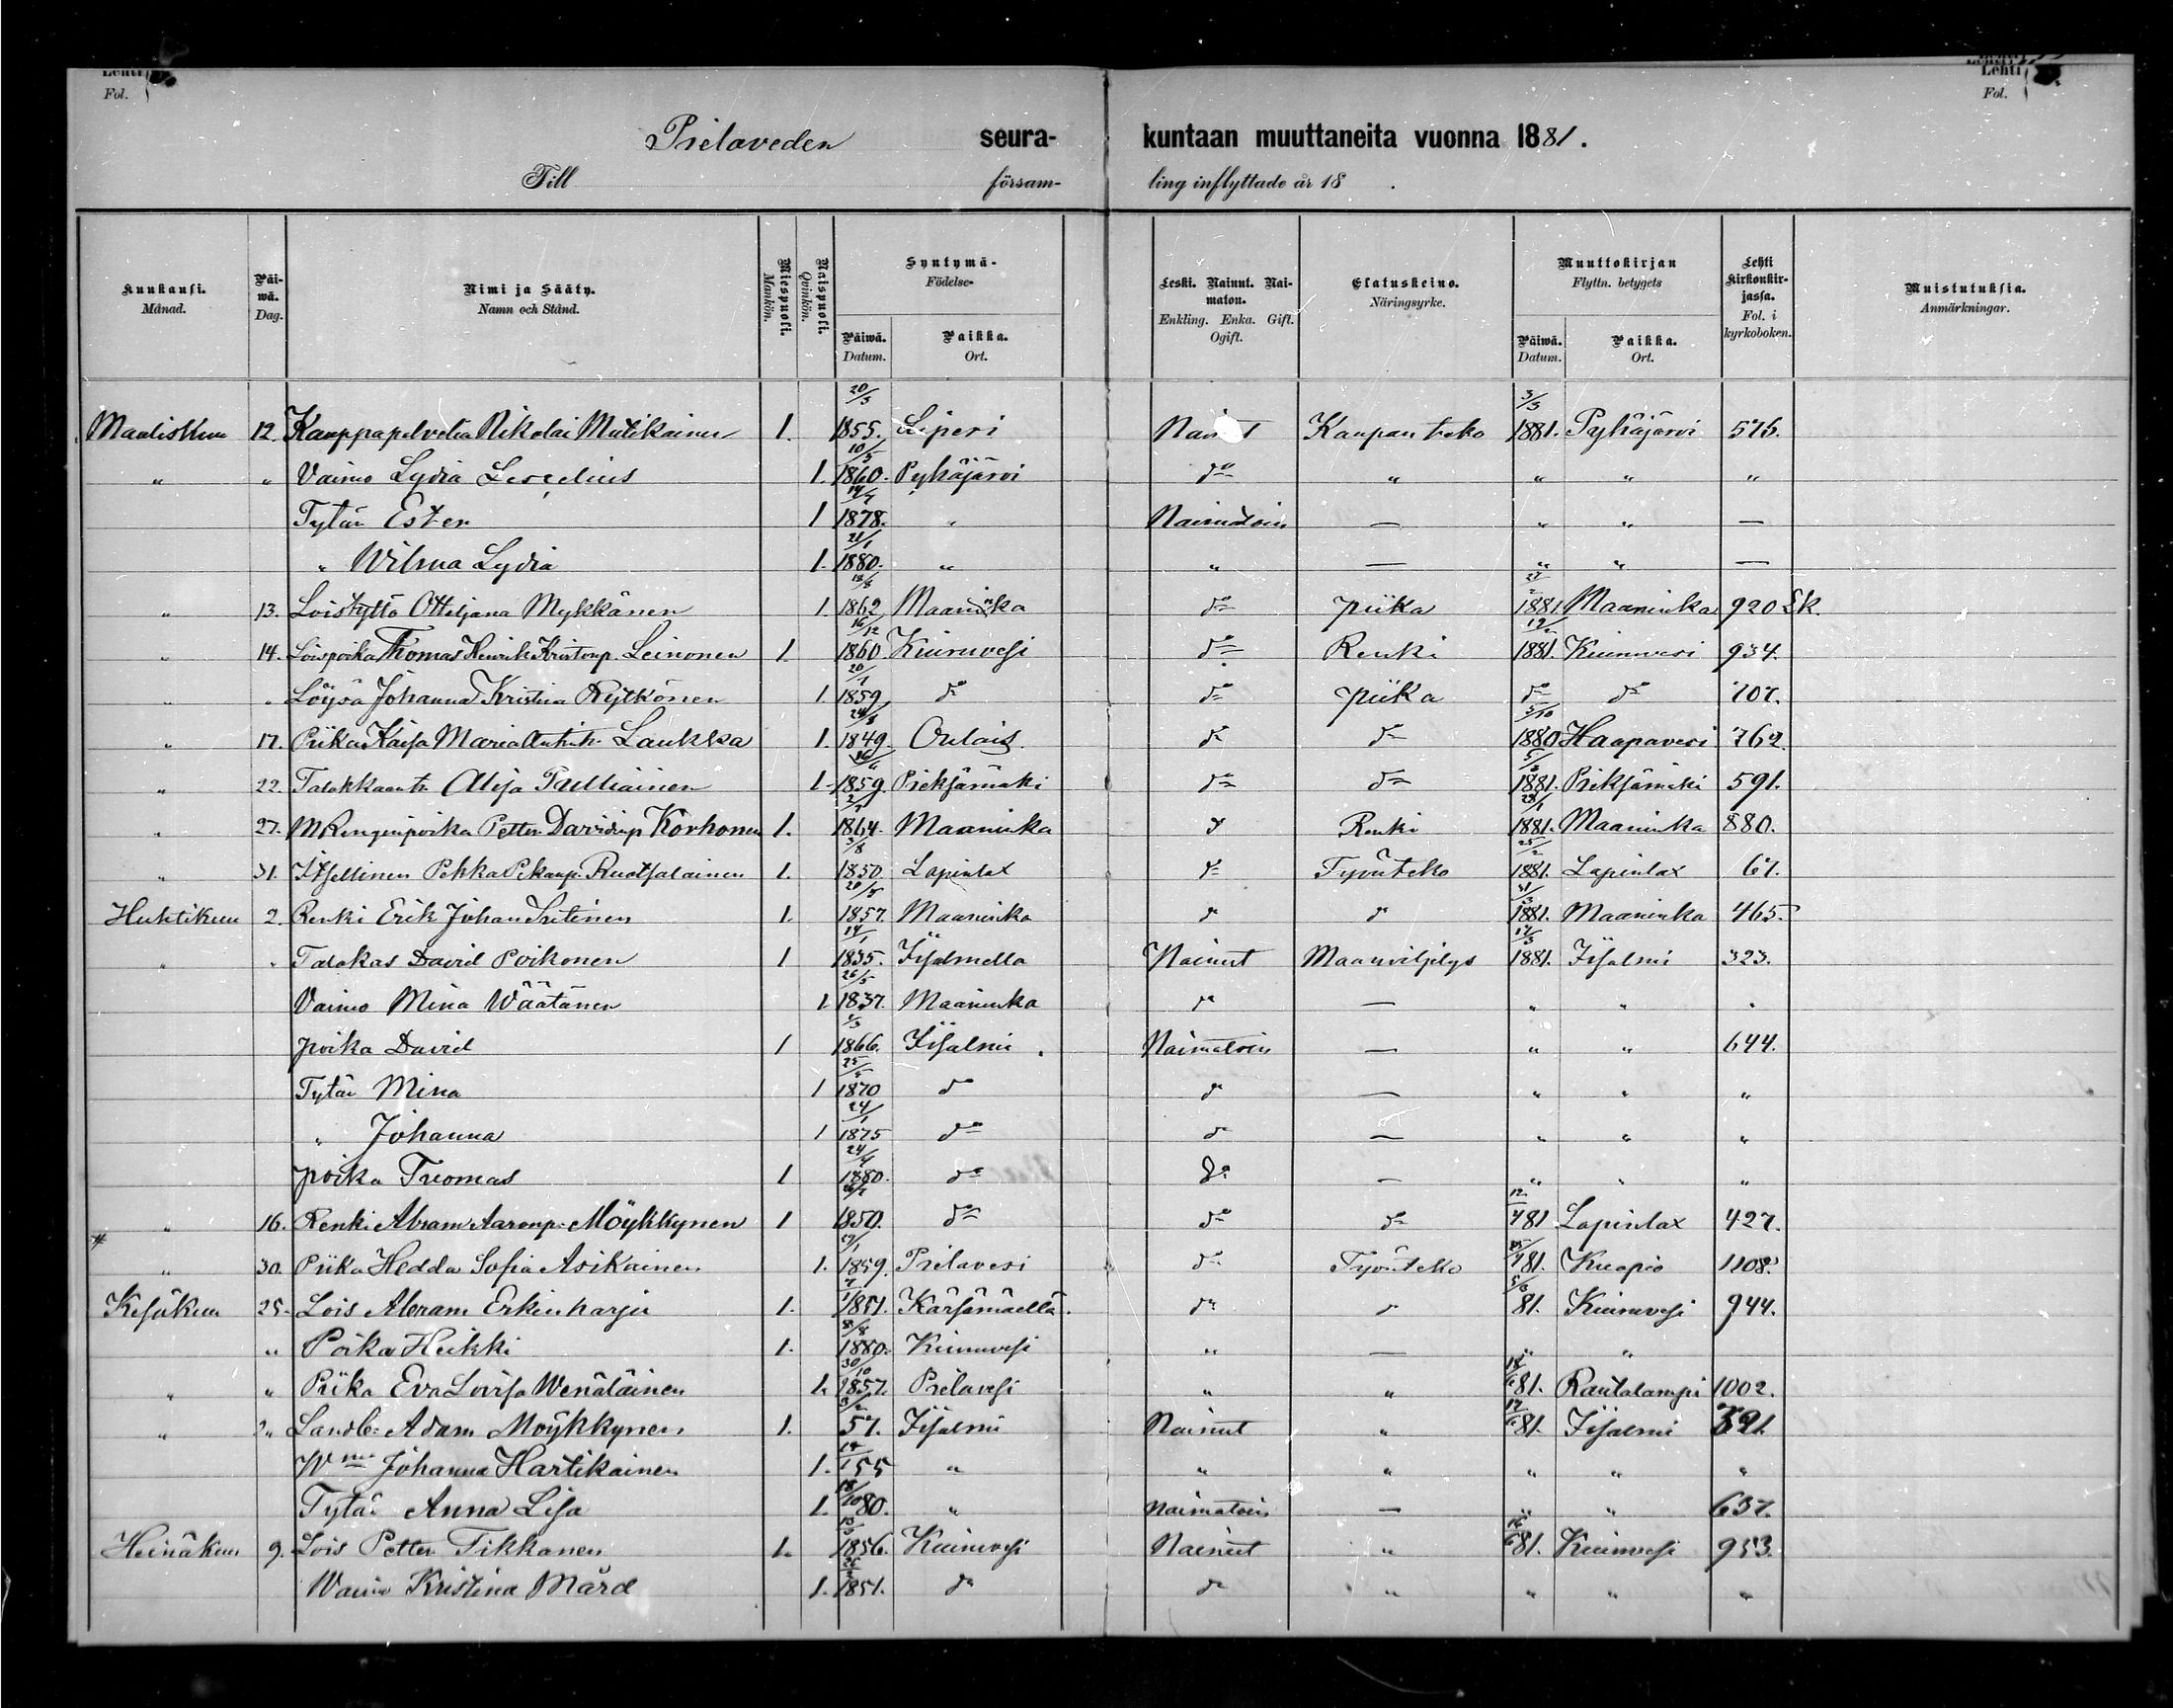 Lehti Fol. Lehti Fol.
Pielaveden seura- kuntaan muuttaneita vuonna 1881.
Till försam- ling inflyttade år 18 .
Kuukausi. Månad. Päi-wä. Dag. Nimi ja Sääty. Namn och Stånd. Miespuoli. Mankön. Naispuoli. Qvinkön. Syntymä- Födelse- Päiwä. Datum. Paikka. Ort. Leski. Nainut. Nai-maton. Enkling. Enka. Gift. Ogift. Elatuskeino. Näringsyrke. Muuttokirjan Flyttn. betygets Päiwä. Datum. Paikka. Ort. Lehti Kirkonkir-jassa. Fol. i kyrkoboken. Muistutuksia. Anmärkningar.
Maaliskuu 12. Kauppapalvelia Nikolai Mutikainen 1. 20/3 1855. Liperi Kaupanteko 3/3 1881. Pyhäjärvi 576.
" " Vaimo Lydia 1. 10/5 1860. Pyhäjärvi do " " " "
Tytär Ester 1 1878. " Naimatoin — " " —
" Wilma Lydia 1. 21/1 1880. " " — " " —
" 13. Loistyttö Ottiljana Mykkänen 1. 1862 Maaninka do piika 1881. Maaninka 920 Lk.
" 14. Loispoika Thomas Henrik Kristonp. Leinonen 1. 16/12 1860 Kiuruvesi do Renki 19/2 1881. Kiuruvesi 934.
" " Löysä Johanna Kristina Rytkönen 1. 20/1 1859 do do piika do do 707.
" 17. Piika Kaisa Maria Laukka 1. 24/3 1849. Oulais. do do 5/10 1880 Haapavesi 762.
" 22. Alisa Pulliainen 1. 1859 Pieksämäki do do 1881. Pieksämäki 591.
" 27. M Rengin poika Petter Davidinp Korhonen 1. 1864. Maaninka do Renki 1881. Maaninka 880.
" 31. Itsellinen Pekka Pekanp. Ruotsalainen 1. 3/8 1850 Lapinlax do Työnteko 25/2 1881. Lapinlax 67.
Huhtikuu 2. Renki Erik Johan 1. 20/5 1857. Maaninka do do 1881. Maaninka 465.
" " Talokas David Poikonen 1 14/1 1835. Iisalmella Nainut Maanviljelys 17/3 1881. Iisalmi 323.
Vaimo Mina Wäätänen 1. 26/5 1837. Maaninka do — " " "
poika David 1 1866. Iisalmi. Naimatoin — " " 644.
Tytär Mina 1 1870 do do — " " "
" Johanna 1 24/1 1875 do do — " " "
poika Tuomas 1 24/4 1880. do do — " " "
" 16. Renki Abram Aaronp. Möykkynen 1 1850. do do do 12/4 81 Lapinlax 427.
# " 30. Piika Hedda Sofia Asikainen 1. 1859. Pielavesi do Työnteko 81. Kuopio 1108.
Kesäkuu 25. Lois Abram Erkinharju 1. 7/1 1851. Kärsämäellä. do do 5/6 81. Kiuruvesi 944.
" Poika Heikki 1. 8/8 1880. Kiuruvesi " — " "
" " Piika Eva Lovisa Wenäläinen 1. 30/10 1857. Pielavesi " " 81. Rautalampi 1002.
" " Landb: Adam Möykkynen 1. 57. Iisalmi Nainut " 17/6 81. Iisalmi 391.
Wmo Johanna Hartikainen 1. 55 " " " " " "
Tytär Anna Lisa 1. 18/10 80. " Naimatoin — " " 637.
Heinäkuu 9. Lois Petter Tikkanen 1. 1856. Kiuruvesi Nainut " 16/6 81. Kiuruvesi 953.
Waimo Kristina Mård 1. 1851. do do " " " "